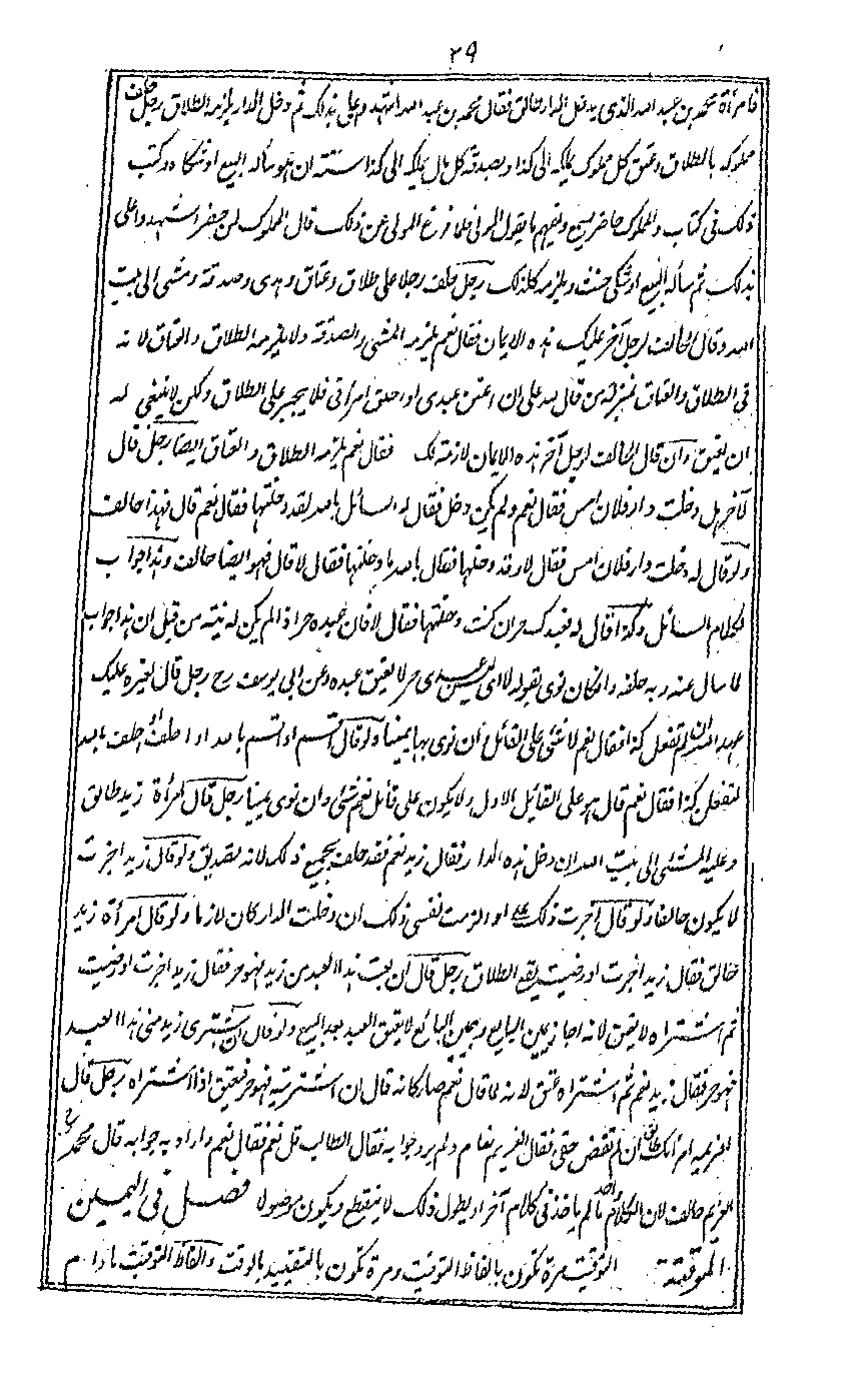 ٢٩
فامرأة محمد بن عبد الله الذي يدخل الدار طالق فقال محمد بن عبد الله اشهدوا علي بذلك ثم دخل الدار يلزمه الطلاق رجل حلف
مملوكه بالطلاق وعتق كل مملوك يملكه الى كذا وبصدقة كل مال يملكه الى كذا سنة ان هو سأله البيع او شكاه وكتب
ذلك في كتاب والمملوك حاضر يسمع ويفهم ما يقول المولى فلما فرغ المولى عن ذلك قال المملوك لمن حضر اشهدوا علي
بذلك ثم سأله البيع او شكى حنث ويلزمه كل ذلك رجل حلف رجلا على طلاق وعتاق وهدى وصدقة ومشى الى بيت
الله وقال الحالف لرجل آخر عليك هذه الايمان فقال نعم يلزمه المشي والصدقة ولا يلزمه الطلاق والعتاق لانه
في الطلاق والعتاق بمنزلة من قال لله علي ان اعتق عبدي او اطلق امرأتي فلا يجبر على الطلاق ولكن لا ينبغي له
ان يعتق وان قال الحالف لرجل آخر هذه الايمان لازمة لك فقال نعم يلزمه الطلاق والعتاق ايضا رجل قال
لآخر هل دخلت دار فلان امس فقال نعم ولم يكن دخل فقال له السائل بالله لقد دخلتها فقال نعم قال فهذا حالف
ولو قال له دخلت دار فلان امس فقال لا وقد دخلها فقال بالله ما دخلتها فقال لا قال فهو ايضا حالف وهذا جواب
لكلام السائل وكذا قال له فعبدك حر ان كنت دخلتها فقال لا فان عبده حر اذا لم يكن له نية من قبل ان هذا جواب
لما سأل عنه وبه حلفه وان كان نوى بقوله لا اي ليس عبدي حر لا يعتق عبده وعن ابي يوسف رح رجل قال لغيره عليك
عهد الله ان لم تفعل كذا فقال نعم لا شئ على القائل ان نوى بها يمينا ولو قال اقسم او اقسم بالله او احلف او احلف بالله
لتفعلن كذا فقال نعم قال هو على القائل الاول ولا يكون على قائل نعم شئ وان نوى يمينا رجل قال امرأة زيد طالق
وعليه المشي الى بيت الله ان دخل هذه الدار فقال زيد نعم فقد حلف بجميع ذلك لانه تصديق ولو قال زيد اجزت
لا يكون حالفا ولو قال اجزت ذلك علي او الزمت نفسي ذلك ان دخلت الدار كان لازما ولو قال امرأة زيد
طالق فقال زيد اجزت او رضيت يقع الطلاق رجل قال ان بعت هذا العبد من زيد فهو حر فقال زيد اجزت او رضيت
ثم اشتراه لا يعتق لانه اجاز يمين البايع وبيمين البائع لا يعتق العبد بعد البيع ولو قال ان اشترى زيد مني هذا العبد
فهو حر فقال زيد نعم ثم اشتراه عتق لانه لما قال نعم صار كانه قال ان اشتريته فهو حر فيعتق اذا اشتراه رجل قال
لغريمه امرأتك طالق ان لم تقض حقي فقال الغريم نعام ولم يرد جوابه فقال الطالب قل نعم فقال نعم واراد به جوابه قال محمد رح
الغريم حالف لان الكلام واحد ما لم ياخذ في كلام آخر او يطول ذلك لا ينقطع ويكون موصولا فصل في اليمين
الموقتة التوقيت مرة تكون بالفاظ التوقيت ومرة تكون بالتقييد بالوقت والفاظ التوقيت ما دام